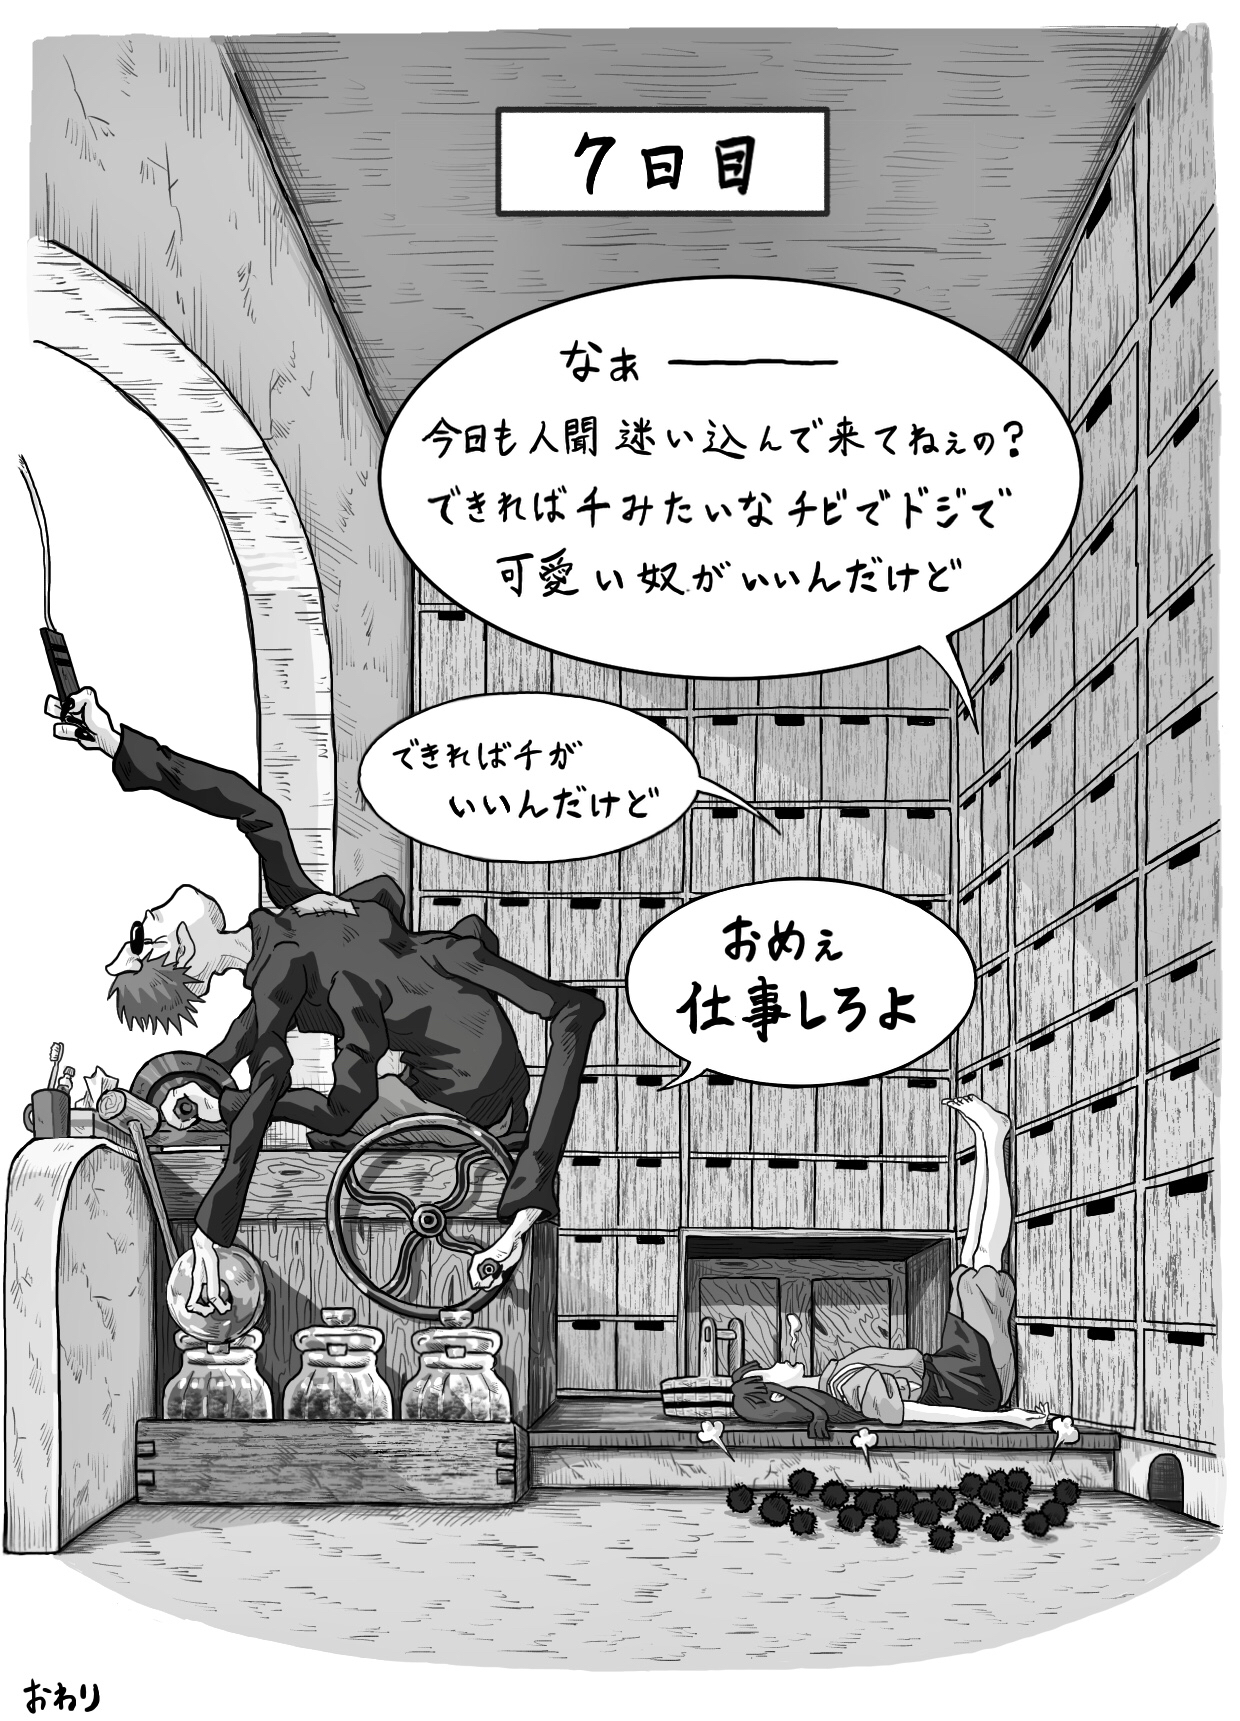 7日目
なぁ―――
今日も人間迷い込んで来てねぇの?
できれば千みたいなチビでドジで
可愛い奴がいいんだけど
できれば千が
いいんだけど
おめぇ
仕事しろよ
おわり